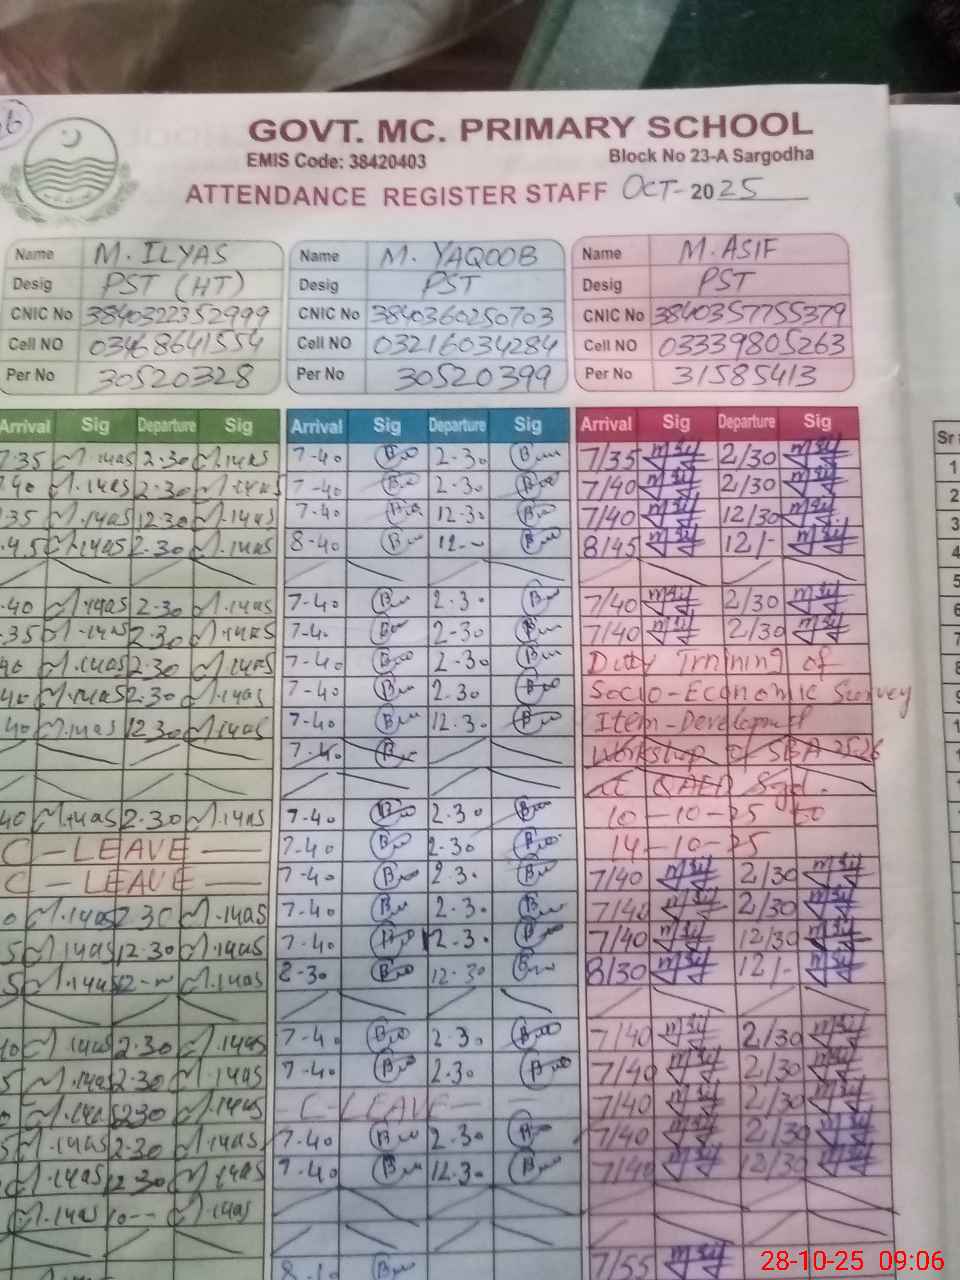 GOVT. MC. PRIMARY SCHOOL
EMIS Code: 38420403 Block No 23-A Sargodha
ATTENDANCE REGISTER STAFF OCT- 2025
Name M. ILYAS Name M. YAQOOB Name M. ASIF
Desig PST (HT) Desig PST Desig PST
CNIC No 3840322352999 CNIC No 3840360250703 CNIC No 3840357755379
Cell NO 03468641554 Cell NO 03216034284 Cell NO 03339805263
Per No 30520328 Per No 30520399 Per No 31585413
Arrival Sig Departure Sig Arrival Sig Departure Sig Arrival Sig Departure Sig
7.35 M.Ilyas 2.30 M.Ilyas 7-40 2-30 7/35 2/30
40 M.Ilyas 2.30 M.Ilyas 7-40 2-30 7/40 2/30
35 M.Ilyas 12.30 M.Ilyas 7-40 12-30 7/40 12/30
.45 M.Ilyas 2.30 M.Ilyas 8-40 12-- 8/45 12/-
.40 M.Ilyas 2.30 M.Ilyas 7-40 2-30 7/40 2/30
.35 M.Ilyas 2.30 M.Ilyas 7-40 2-30 7/40 2/30
40 M.Ilyas 2.30 M.Ilyas 7-40 2-30 Duty Training of
40 M.Ilyas 2.30 M.Ilyas 7-40 2-30 Socio-Economic Survey
40 M.Ilyas 12.30 M.Ilyas 7-40 12-30 Item-Development
7-40 Workshop of SBA 2526
at QAED Sgd.
40 M.Ilyas 2.30 M.Ilyas 7-40 2-30 10-10-25 to
C-LEAVE 7-40 2-30 14-10-25
C-LEAVE 7-40 2-30 7/40 2/30
0 M.Ilyas 2.30 M.Ilyas 7-40 2-30 7/40 2/30
5 M.Ilyas 12.30 M.Ilyas 7-40 12-30 7/40 12/30
5 M.Ilyas 12-- M.Ilyas 8-30 12-30 8/30 12/-
40 M.Ilyas 2.30 M.Ilyas 7-40 2-30 7/40 2/30
5 M.Ilyas 2.30 M.Ilyas 7-40 2-30 7/40 2/30
M.Ilyas 2.30 M.Ilyas -C-LEAVE- 7/40 2/30
5 M.Ilyas 2.30 M.Ilyas 7-40 2-30 7/40 2/30
M.Ilyas 12.30 M.Ilyas 7-40 12-30 7/40 12/30
M.Ilyas 10-- M.Ilyas
8-10 7/55
Sr
1
2
3
4
5
6
7
8
9
28-10-25 09:06